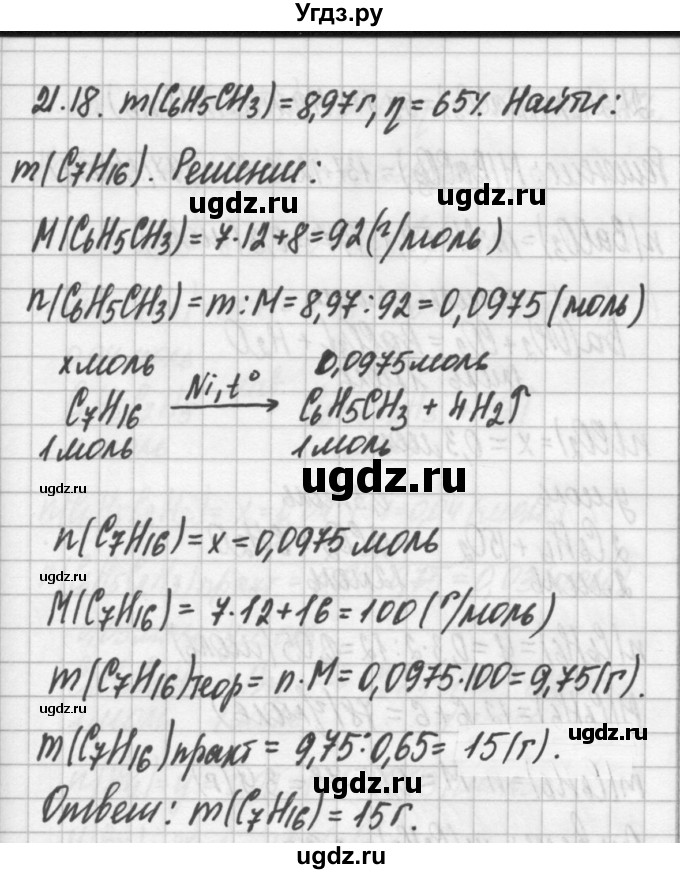 Угдз.ру
21.18. m(C₆H₅CH₃) = 8,97 г, η = 65%. Найти:
m(C₇H₁₆). Решение:
ugdz.ru
M(C₆H₅CH₃) = 7·12+8 = 92 (г/моль)
ugdz.ru
n(C₆H₅CH₃) = m : M = 8,97 : 92 = 0,0975 (моль)
x моль 0,0975 моль
C₇H₁₆ Ni, t° → C₆H₅CH₃ + 4H₂↑
1 моль 1 моль
ugdz.ru
ugdz.ru
n(C₇H₁₆) = x = 0,0975 моль
ugdz.ru
M(C₇H₁₆) = 7·12+16 = 100 (г/моль)
m(C₇H₁₆)теор = n·M = 0,0975·100 = 9,75 (г).
ugdz.ru
ugdz.ru
m(C₇H₁₆)практ = 9,75 : 0,65 = 15 (г).
ugdz.ru
Ответ: m(C₇H₁₆) = 15 г.
ugdz.ru